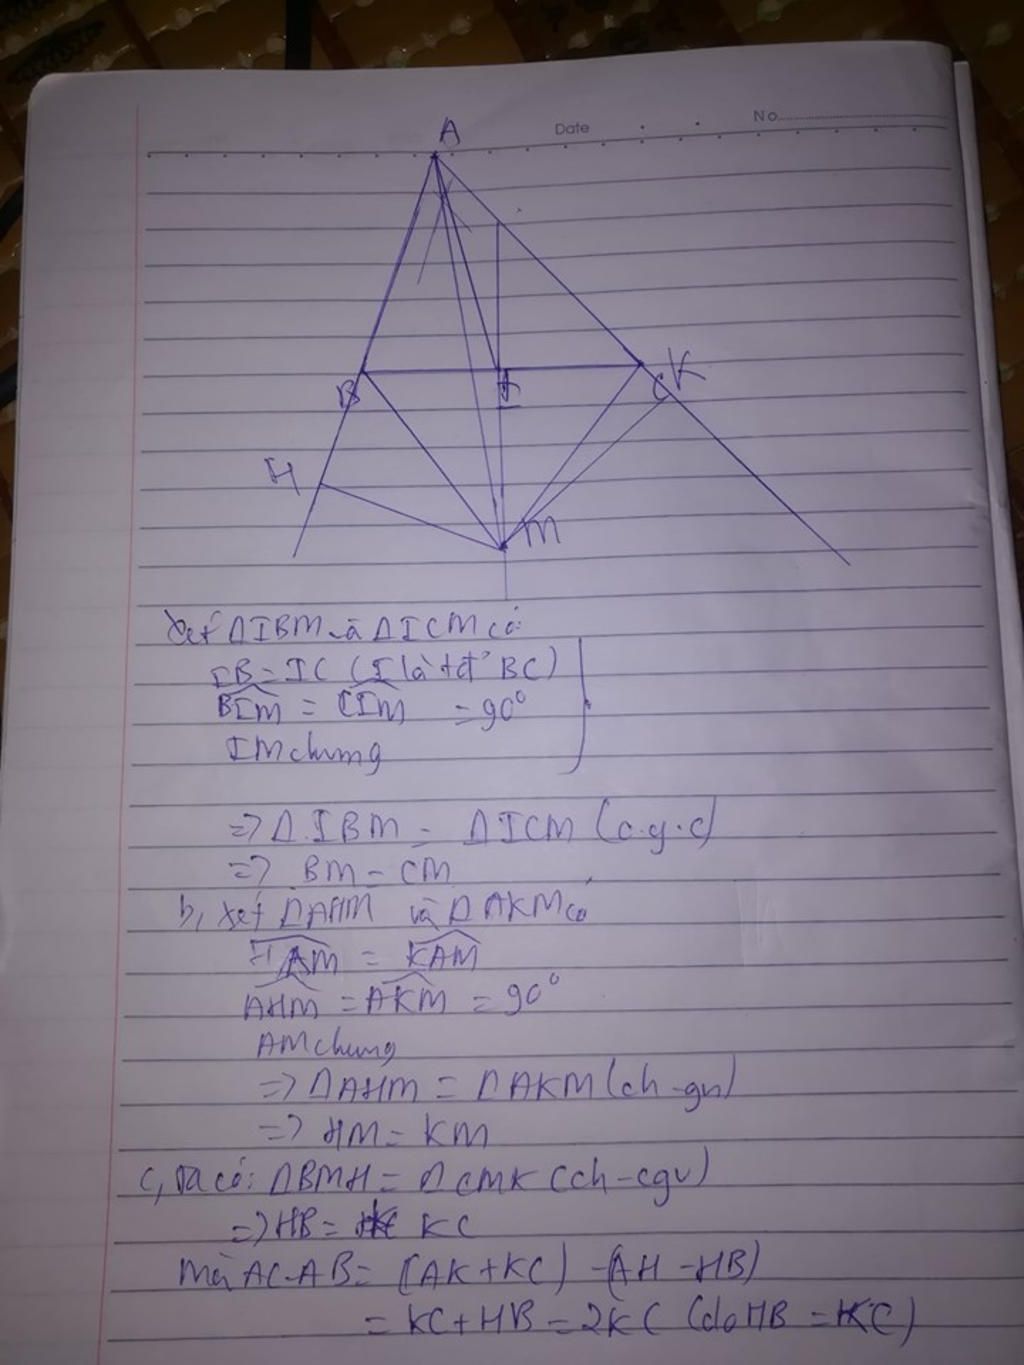 Date
No
A
B
I
C K
H
M
Xét ΔIBM và ΔICM có:
IB = IC (I là tđ BC)
BIM = CIM = 90°
IM chung
=> Δ IBM = ΔICM (c.g.c)
=> BM = CM
b, xét ΔAHM và ΔAKM có
HAM = KAM
AHM = AKM = 90°
AM chung
=> ΔAHM = ΔAKM (ch-gn)
=> HM = KM
c, Ta có: ΔBMH = ΔCMK (ch-cgv)
=> HB = KC
Mà AC-AB = (AK+KC) - (AH-HB)
= KC+HB = 2KC (do HB = KC)